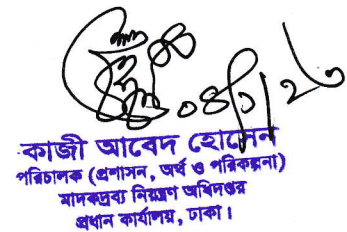 ০৪/০১/২৩
কাজী আবেদ হোসেন
পরিচালক (প্রশাসন, অর্থ ও পরিকল্পনা)
মাদকদ্রব্য নিয়ন্ত্রণ অধিদপ্তর
প্রধান কার্যালয়, ঢাকা।